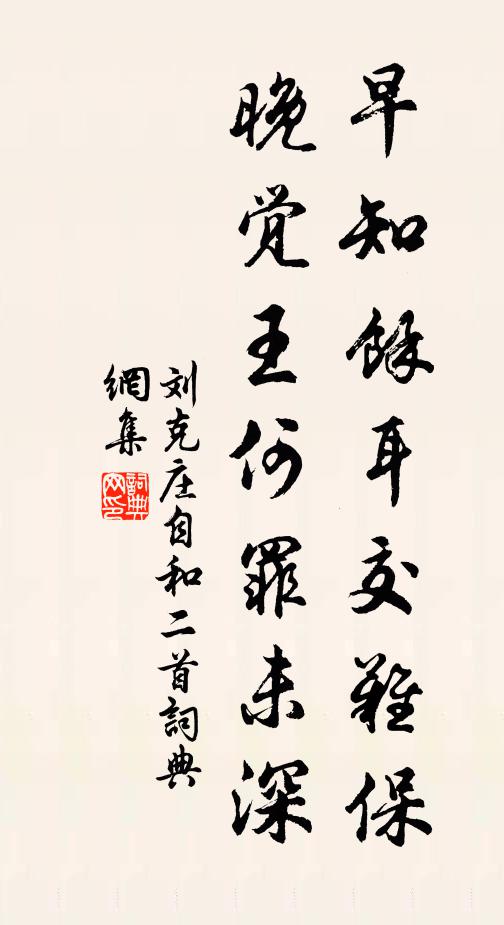 早知餘耳交難保
晚觉王何罪未深
刘克庄自和二首詞典
網集
詞典
网印